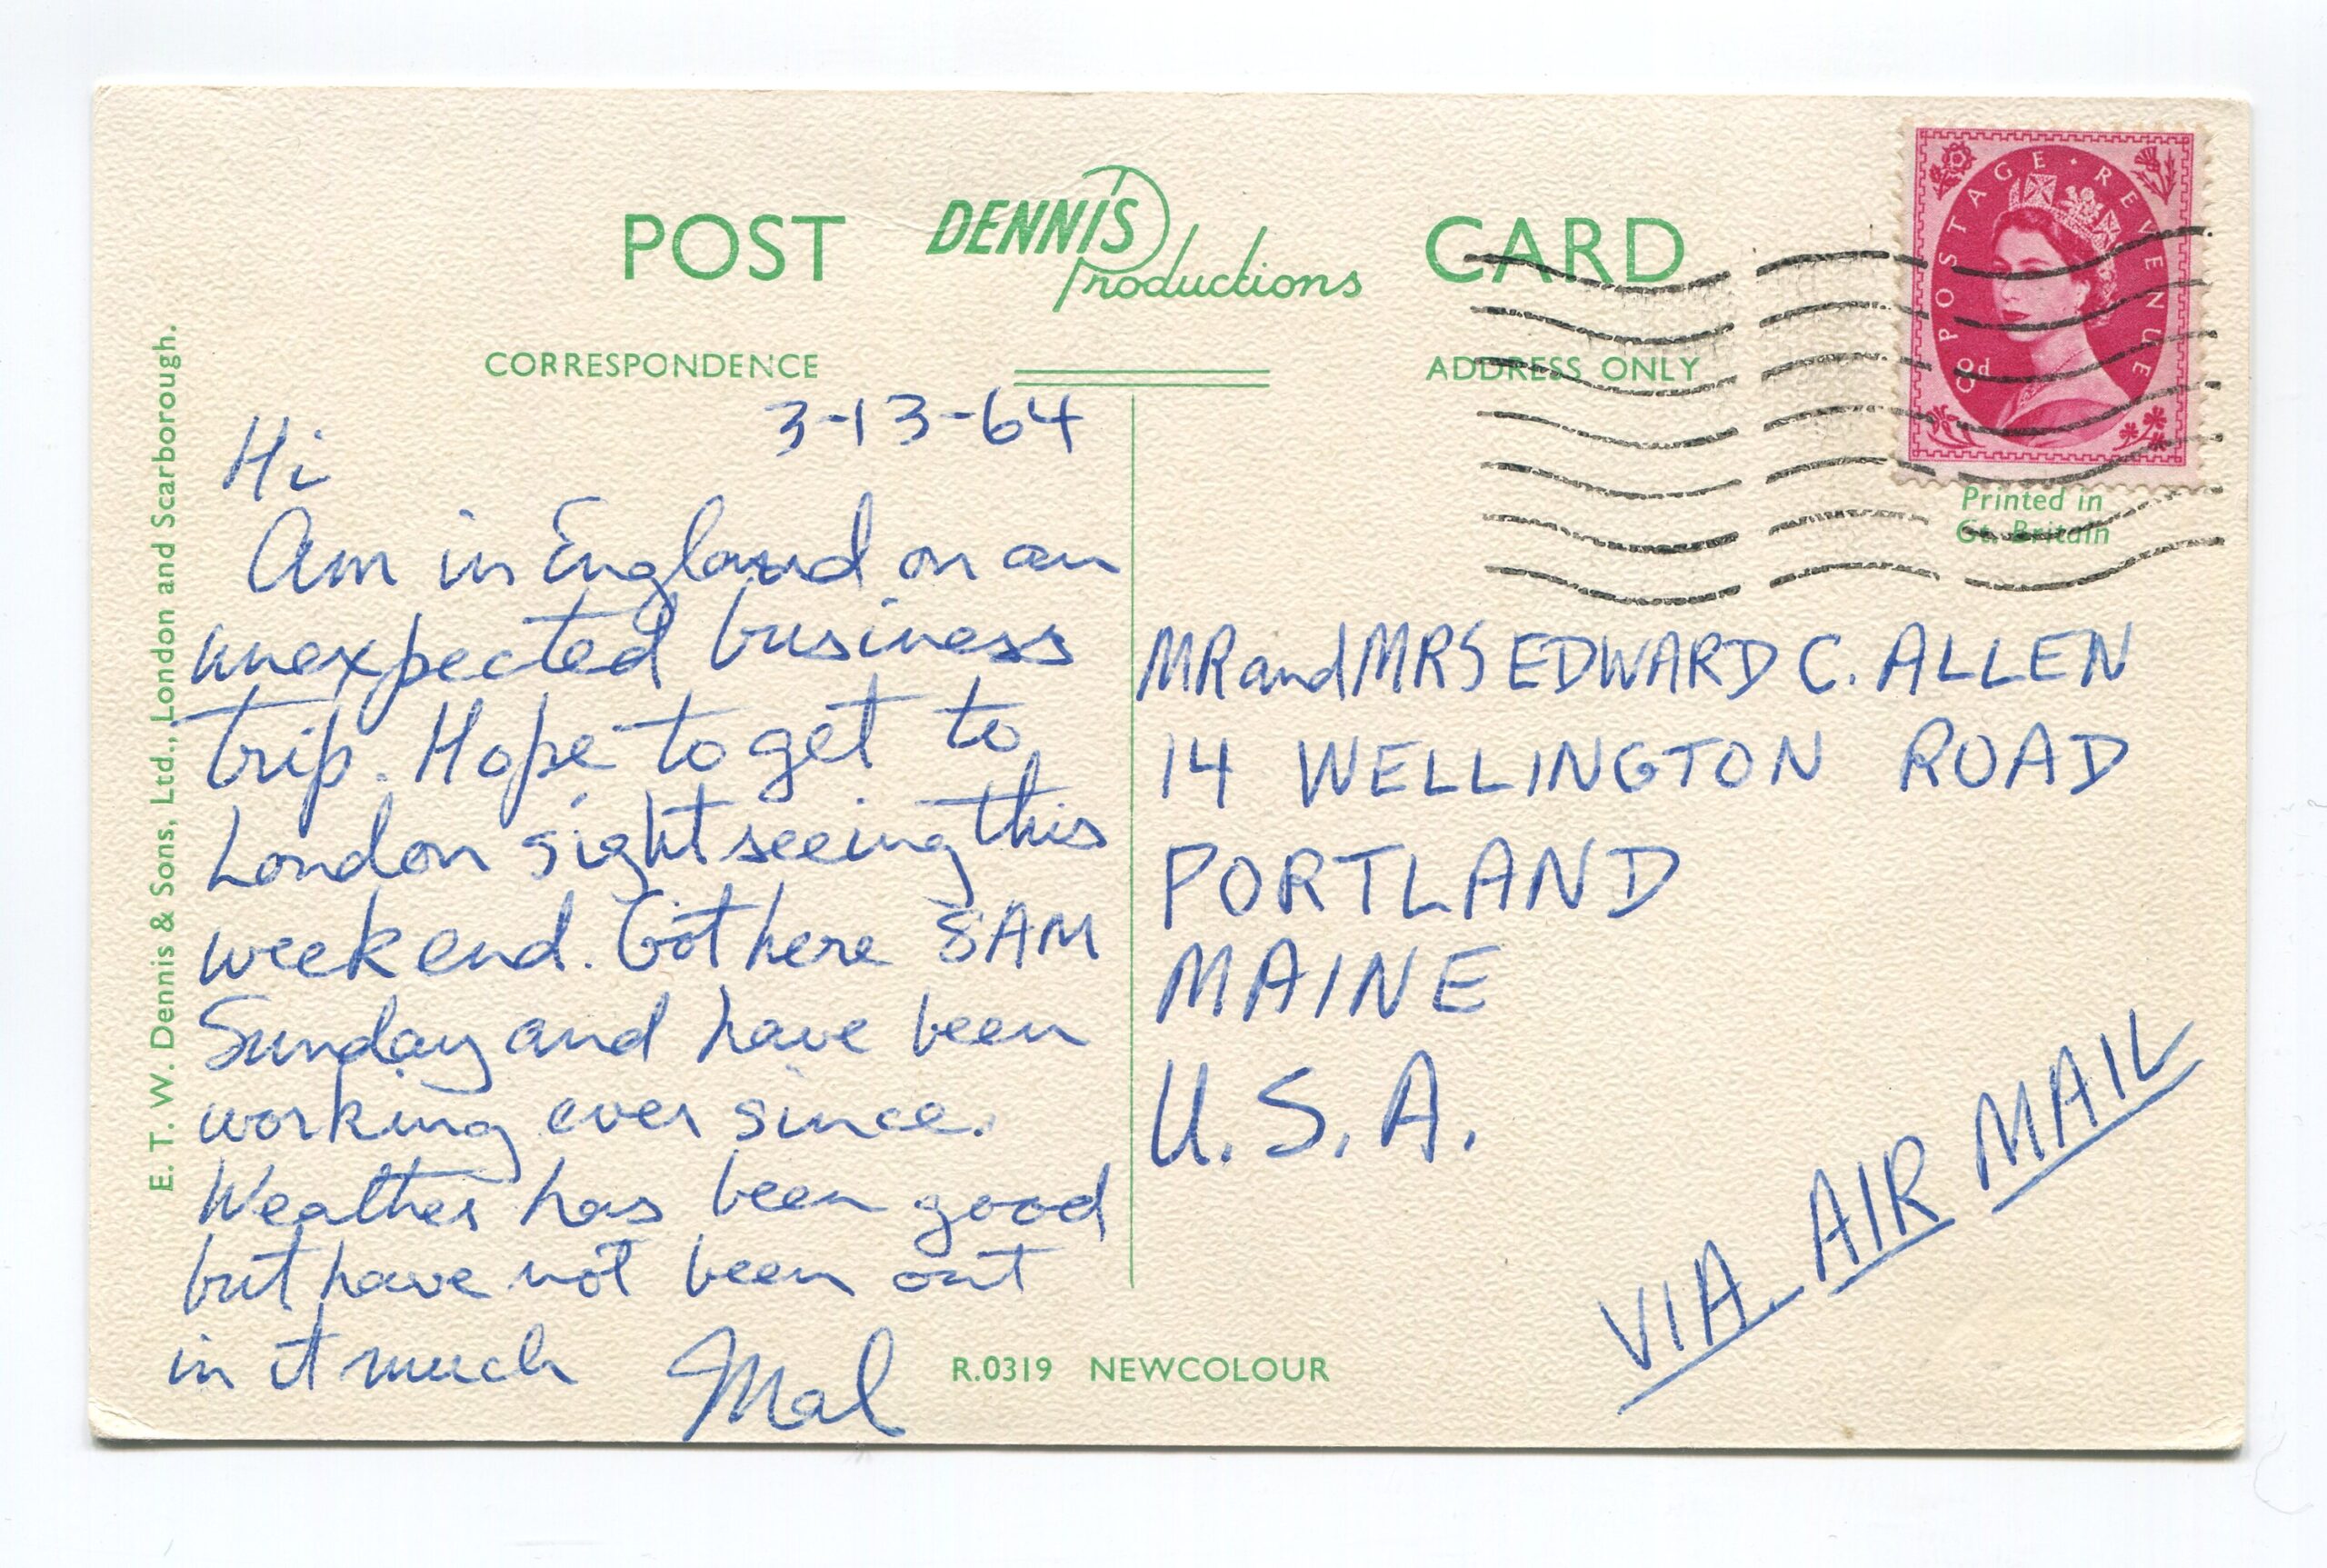 POST DENNIS Productions CARD
CORRESPONDENCE
ADDRESS ONLY
POSTAGE · REVENUE
8d
Printed in
Gt. Britain
E. T. W. Dennis & Sons, Ltd., London and Scarborough.
3-13-64
Hi
Am in England on an
unexpected business
trip. Hope to get to
London sightseeing this
weekend. Got here 8AM
Sunday and have been
working ever since.
Weather has been good
but have not been out
in it much Mal
MR and MRS EDWARD C. ALLEN
14 WELLINGTON ROAD
PORTLAND
MAINE
U.S.A.
VIA AIR MAIL
R.0319 NEWCOLOUR